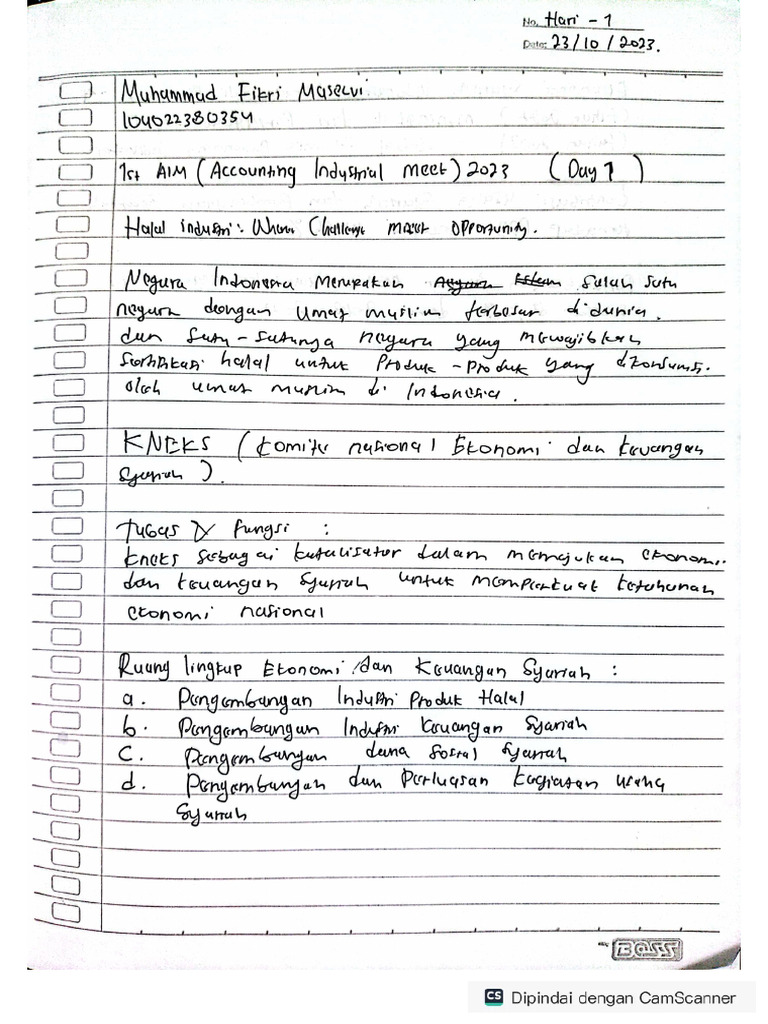 No. Hari - 1
Date: 23/10/2023.
Muhammad Fikri Maselvi
104022380354
1st AIM (Accounting Industrial Meet) 2023 (Day 1)
Halal industri: Where Challenge meet Opportunity.
Negara Indonesia Merupakan salah satu
negara dengan umat muslim terbesar didunia.
dan satu-satunya negara yang mewajibkan
sertifikasi halal untuk Produk-produk yang dikonsumsi
oleh umat muslim di Indonesia.
KNEKS (komite nasional Ekonomi dan keuangan
Syariah).
Tugas & fungsi :
kneks sebagai katalisator dalam memajukan ekonomi
dan keuangan Syariah untuk memperkuat ketahanan
ekonomi nasional
Ruang lingkup Ekonomi dan Keuangan Syariah :
a. Pengembangan Industri Produk Halal
b. Pengembangan Industri keuangan Syariah
c. Pengembangan dana sosial syariah
d. Pengembangan dan Perluasan kegiatan usaha
Syariah
BOSS
CS Dipindai dengan CamScanner